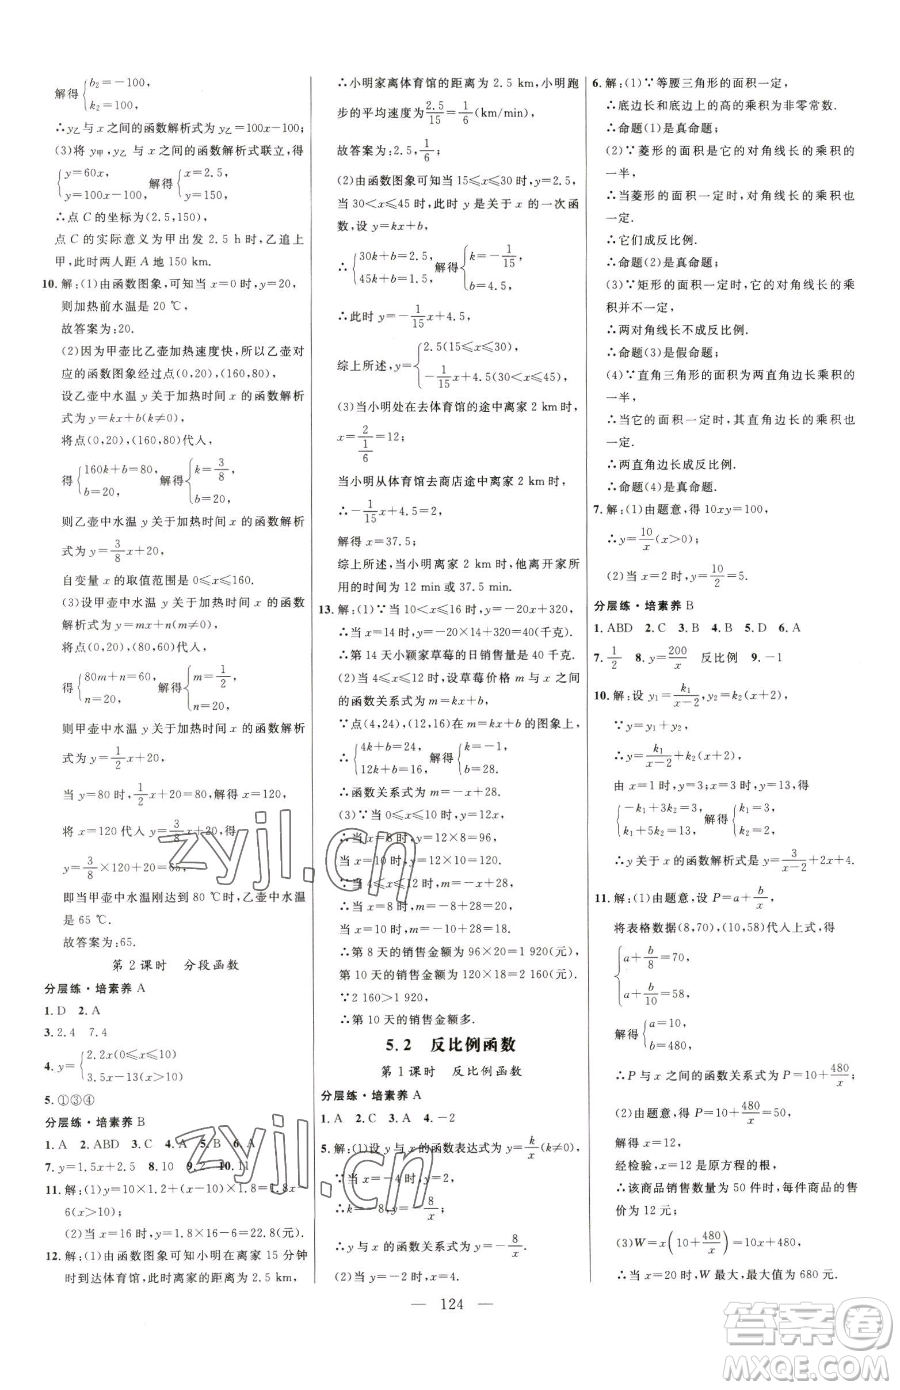 解得{b₂=-100,
k₂=100,
∴y乙与x之间的函数解析式为y乙=100x-100;
(3)将y甲,y乙与x之间的函数解析式联立,得
{y=60x,
y=100x-100,解得{x=2.5,
y=150,
∴点C的坐标为(2.5,150),
点C的实际意义为甲出发2.5 h时,乙追上
甲,此时两人距A地150 km.
10.解:(1)由函数图象,可知当x=0时,y=20,
则加热前水温是20 ℃,
故答案为:20.
(2)因为甲壶比乙壶加热速度快,所以乙壶对
应的函数图象经过点(0,20),(160,80),
设乙壶中水温y关于加热时间x的函数解析
式为y=kx+b(k≠0),
将点(0,20),(160,80)代入,
得{160k+b=80,
b=20,解得{k=3/8,
b=20,
则乙壶中水温y关于加热时间x的函数解析
式为y=3/8x+20,
自变量x的取值范围是0≤x≤160.
(3)设甲壶中水温y关于加热时间x的函数
解析式为y=mx+n(m≠0),
将点(0,20),(80,60)代入,
得{80m+n=60,
n=20,解得{m=1/2,
n=20,
则甲壶中水温y关于加热时间x的函数解析
式为y=1/2x+20,
当y=80时,1/2x+20=80,解得x=120,
将x=120代入y=3/8x+20得
y=3/8×120+20=65,
即当甲壶中水温刚达到80 ℃时,乙壶中水温
是65 ℃.
故答案为:65.
第2课时 分段函数
分层练·培素养A
1.D 2.A
3.2.4 7.4
4.y={2.2x(0≤x≤10)
3.5x-13(x>10)
5.①③④
分层练·培素养B
1.A 2.ABD 3.C 4.A 5.B 6.A
7.y=1.5x+2.5 8.10 9.2 10.11
11.解:(1)y=10×1.2+(x-10)×1.8=1.8x-
6(x>10);
(2)当x=16时,y=1.8×16-6=22.8(元).
12.解:(1)由函数图象可知小明在离家15分钟
时到达体育馆,此时离家的距离为2.5 km,
∴小明家离体育馆的距离为2.5 km,小明跑
步的平均速度为2.5/15=1/6(km/min),
故答案为:2.5,1/6;
(2)由函数图象可知当15≤x≤30时,y=2.5,
当30<x≤45时,此时y是关于x的一次函
数,
∴{30k+b=2.5,
45k+b=1.5,解得{k=-1/15
b=4.5,
∴此时y=-1/15x+4.5,
综上所述,y={2.5(15≤x≤30)
-1/15x+4.5(30<x≤45);
(3)当小明处在去体育馆的途中离家2 km时,
x=2/(1/6)=12;
当小明从体育馆去商店途中离家2 km时,
∴-1/15x+4.5=2,
解得x=37.5,
综上所述,当小明离家2 km时,他离开家所
用的时间为12 min或37.5 min.
13.解:(1)∵当10<x≤16时,y=-20x+320,
∴当x=14时,y=-20×14+320=40(千克),
∴第14天小颖家草莓的日销售量是40千克.
(2)当4≤x≤12时,设草莓价格m与x之间
的函数关系式为m=kx+b,
∵点(4,24),(12,16)在m=kx+b的图象上,
∴{4k+b=24,
12k+b=16,解得{k=-1,
b=28.
∴函数关系式为m=-x+28.
(3)∵当0≤x≤10时,y=12x,
∴当x=8时,y=12×8=96,
当x=10时,y=12×10=120,
∵当4≤x≤12时,m=-x+28,
∴当x=8时,m=-8+28=20,
当x=10时,m=-10+28=18,
∴第8天的销售金额为96×20=1 920(元),
第10天的销售金额为120×18=2 160(元).
∵2 160>1 920,
∴第10天的销售金额多.
5.2 反比例函数
第1课时 反比例函数
分层练·培素养A
1.A 2.C 3.A 4.-2
5.解:(1)设y与x的函数表达式为y=k/x(k≠0),
∵当x=
∴k=
∴y与x的函数关系式为y=-8/x;
(2)当y=-2时,x=4.
6.解:(1)∵等腰三角形的面积一定,
∴底边长和底边上的高的乘积为非零常数.
∴命题(1)是真命题.
(2)∵菱形的面积等于它的对角线长的乘积的
一半,
∴当菱形的面积一定时,对角线长的乘积也一
定.
∴它们成反比例.
∴命题(2)是真命题.
(3)∵矩形的面积一定时,它的对角线长的乘
积并不一定,
∴两对角线长不成反比例.
∴命题(3)是假命题.
(4)∵直角三角形的面积为直角边长乘积的
一半,
∴当它的面积一定时,其直角边长的乘积也一
定.
∴两直角边长成反比例.
∴命题(4)是真命题.
7.解:(1)由题意,得10xy=100,
∴y=10/x(x>0);
(2)当x=2时,y=10/2=5.
分层练·培素养B
1.ABD 2.C 3.B 4.B 5.D 6.A
7.1/2 8.y=200/x 反比例 9.-1
10.解:设y₁=k₁/(x-2),y₂=k₂(x+2),
∵y=y₁+y₂,
∴y=k₁/(x-2)+k₂(x+2),
由x=1时,y=3;x=3时,y=13得
{-k₁+3k₂=3,
k₁+5k₂=13,解得{k₁=3,
k₂=2.
∴y关于x的函数解析式是y=3/(x-2)+2x+4.
11.解:(1)由题意,设P=a+b/x,
将表格数据(8,70),(10,58)代入上式,得
{a+b/8=70,
a+b/10=58,
解得{a=10,
b=480,
∴P与x之间的函数关系式为P=10+480/x;
(2)由题意,得P=10+480/x=50,
解得x=12,
经检验,x=12是原方程的根,
∴该商品销售数量为50件时,每件商品的售
价为12元;
(3)W=x(10+480/x)=10x+480,
∴当x=20时,W最大,最大值为680元.
— 124 —
zyjl.cn
zyjl.cn
答案圈
MXQE.COM